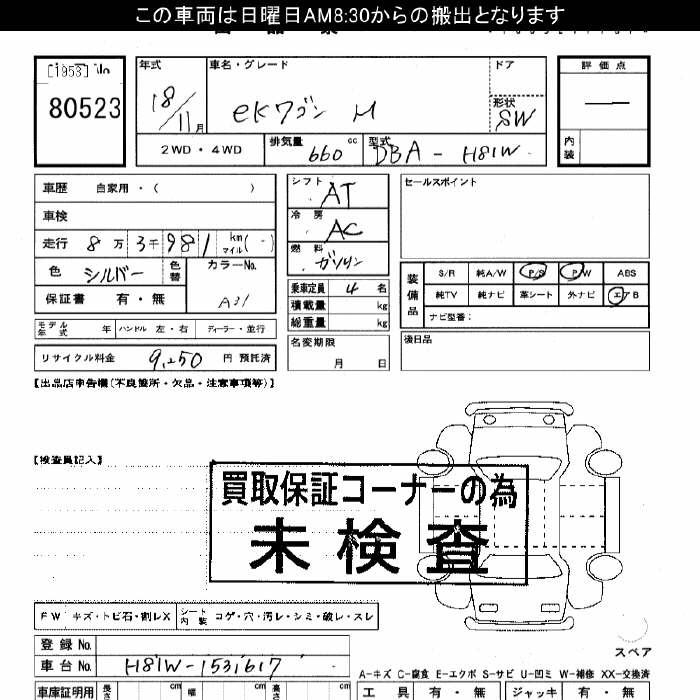 この車両は日曜日AM8:30からの搬出となります
[1953] No
80523
年式
18/11月
車名・グレード
eKワゴン M
ドア
形状
SW
評価点
—
内装
2WD・4WD
排気量
660 cc
型式
DBA-H81W
車歴 自家用・( )
車検
走行 8万3千981 km マイル(-)
色 シルバー
色替
カラーNo.
A31
保証書 有・無
モデル年式 年
ハンドル 左・右
ディーラー・並行
リサイクル料金 9,250 円 預託済
シフト AT
冷房 AC
燃料 ガソリン
乗車定員 4 名
積載量 kg
総重量 kg
名変期限
月 日
セールスポイント
装備品
S/R 純A/W P/S P/W ABS
純TV 純ナビ 革シート 外ナビ エアB
ナビ型番:
後日品
【出品店申告欄(不良箇所・欠品・注意事項等)】
【検査員記入】
買取保証コーナーの為
未検査
FW キズ・トビ石・割レX
シート内装 コゲ・穴・汚レ・シミ・破レ・スレ
登録No.
車台No. H81W-1531617
スペア
A-キズ C-腐食 E-エクボ S-サビ U-凹ミ W-補修 XX-交換済
車庫証明用 長さ cm 幅 cm 高さ cm
工具 有・無 ジャッキ 有・無